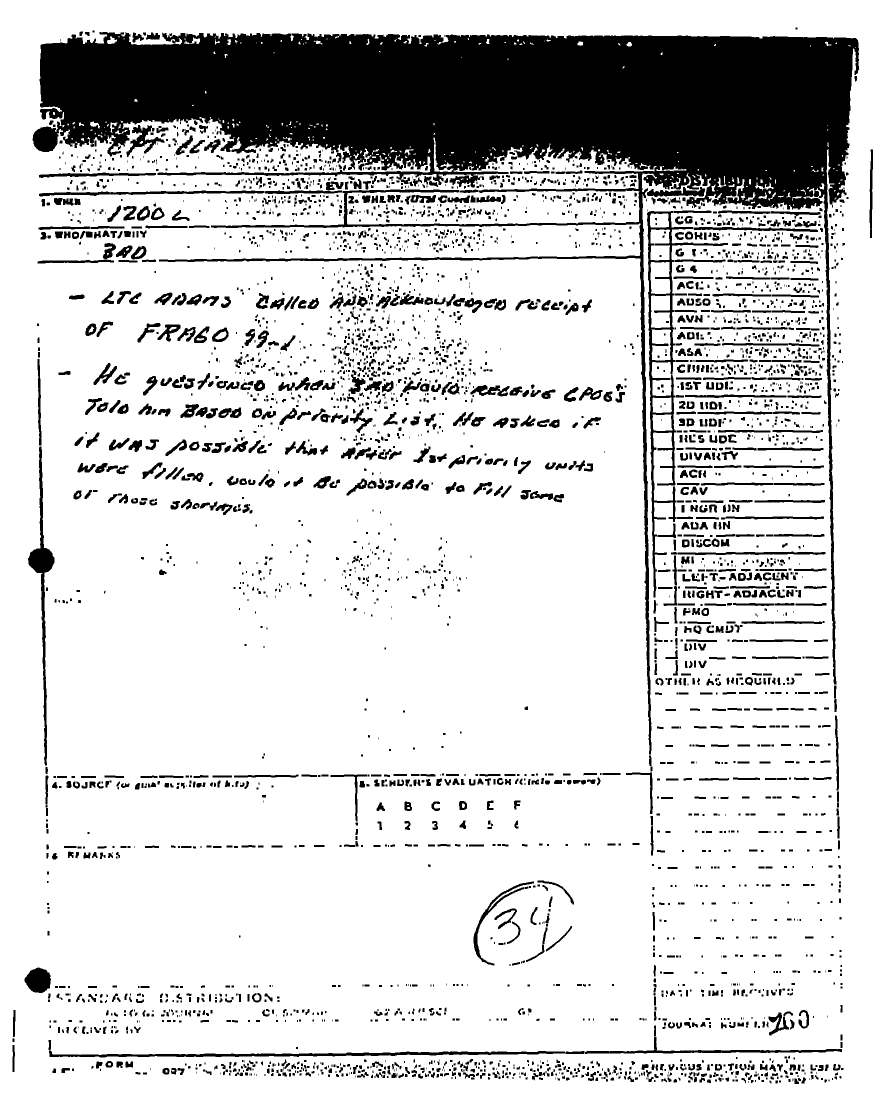 TO:
CPT CLARK
EVENT
1. WHEN
1200 L
2. WHERE (UTM Coordinates)
3. WHO/WHAT/WHY
3AD
- LTC ADAMS CALLED AND ACKNOWLEDGED RECEIPT
OF FRAGO 99-1
- HE questioned when 3AD WOULD RECEIVE CPOG's
Told him BASED ON priority List. HE ASKED iF
it WAS possible that AFTER 1st priority units
were filled, would it BE possible to Fill some
OF those shortages.
CG
CORPS
G 1
G 4
AVN
ASA
2D UDE
3D UDE
RES UDE
DIVARTY
ACR
CAV
ENGR BN
ADA BN
DISCOM
MI
LEFT-ADJACENT
RIGHT-ADJACENT
PMO
HQ CMDT
DIV
DIV
OTHER AS REQUIRED
4. SOURCE (or
5. SENDER'S EVALUATION (Circle answers)
A B C D E F
1 2 3 4 5 6
6 REMARKS
34
STANDARD DISTRIBUTION:
RECEIVED BY
DATE TIME RECEIVED
JOURNAL NUMBER 260
FORM
PREVIOUS EDITION MAY BE USED.